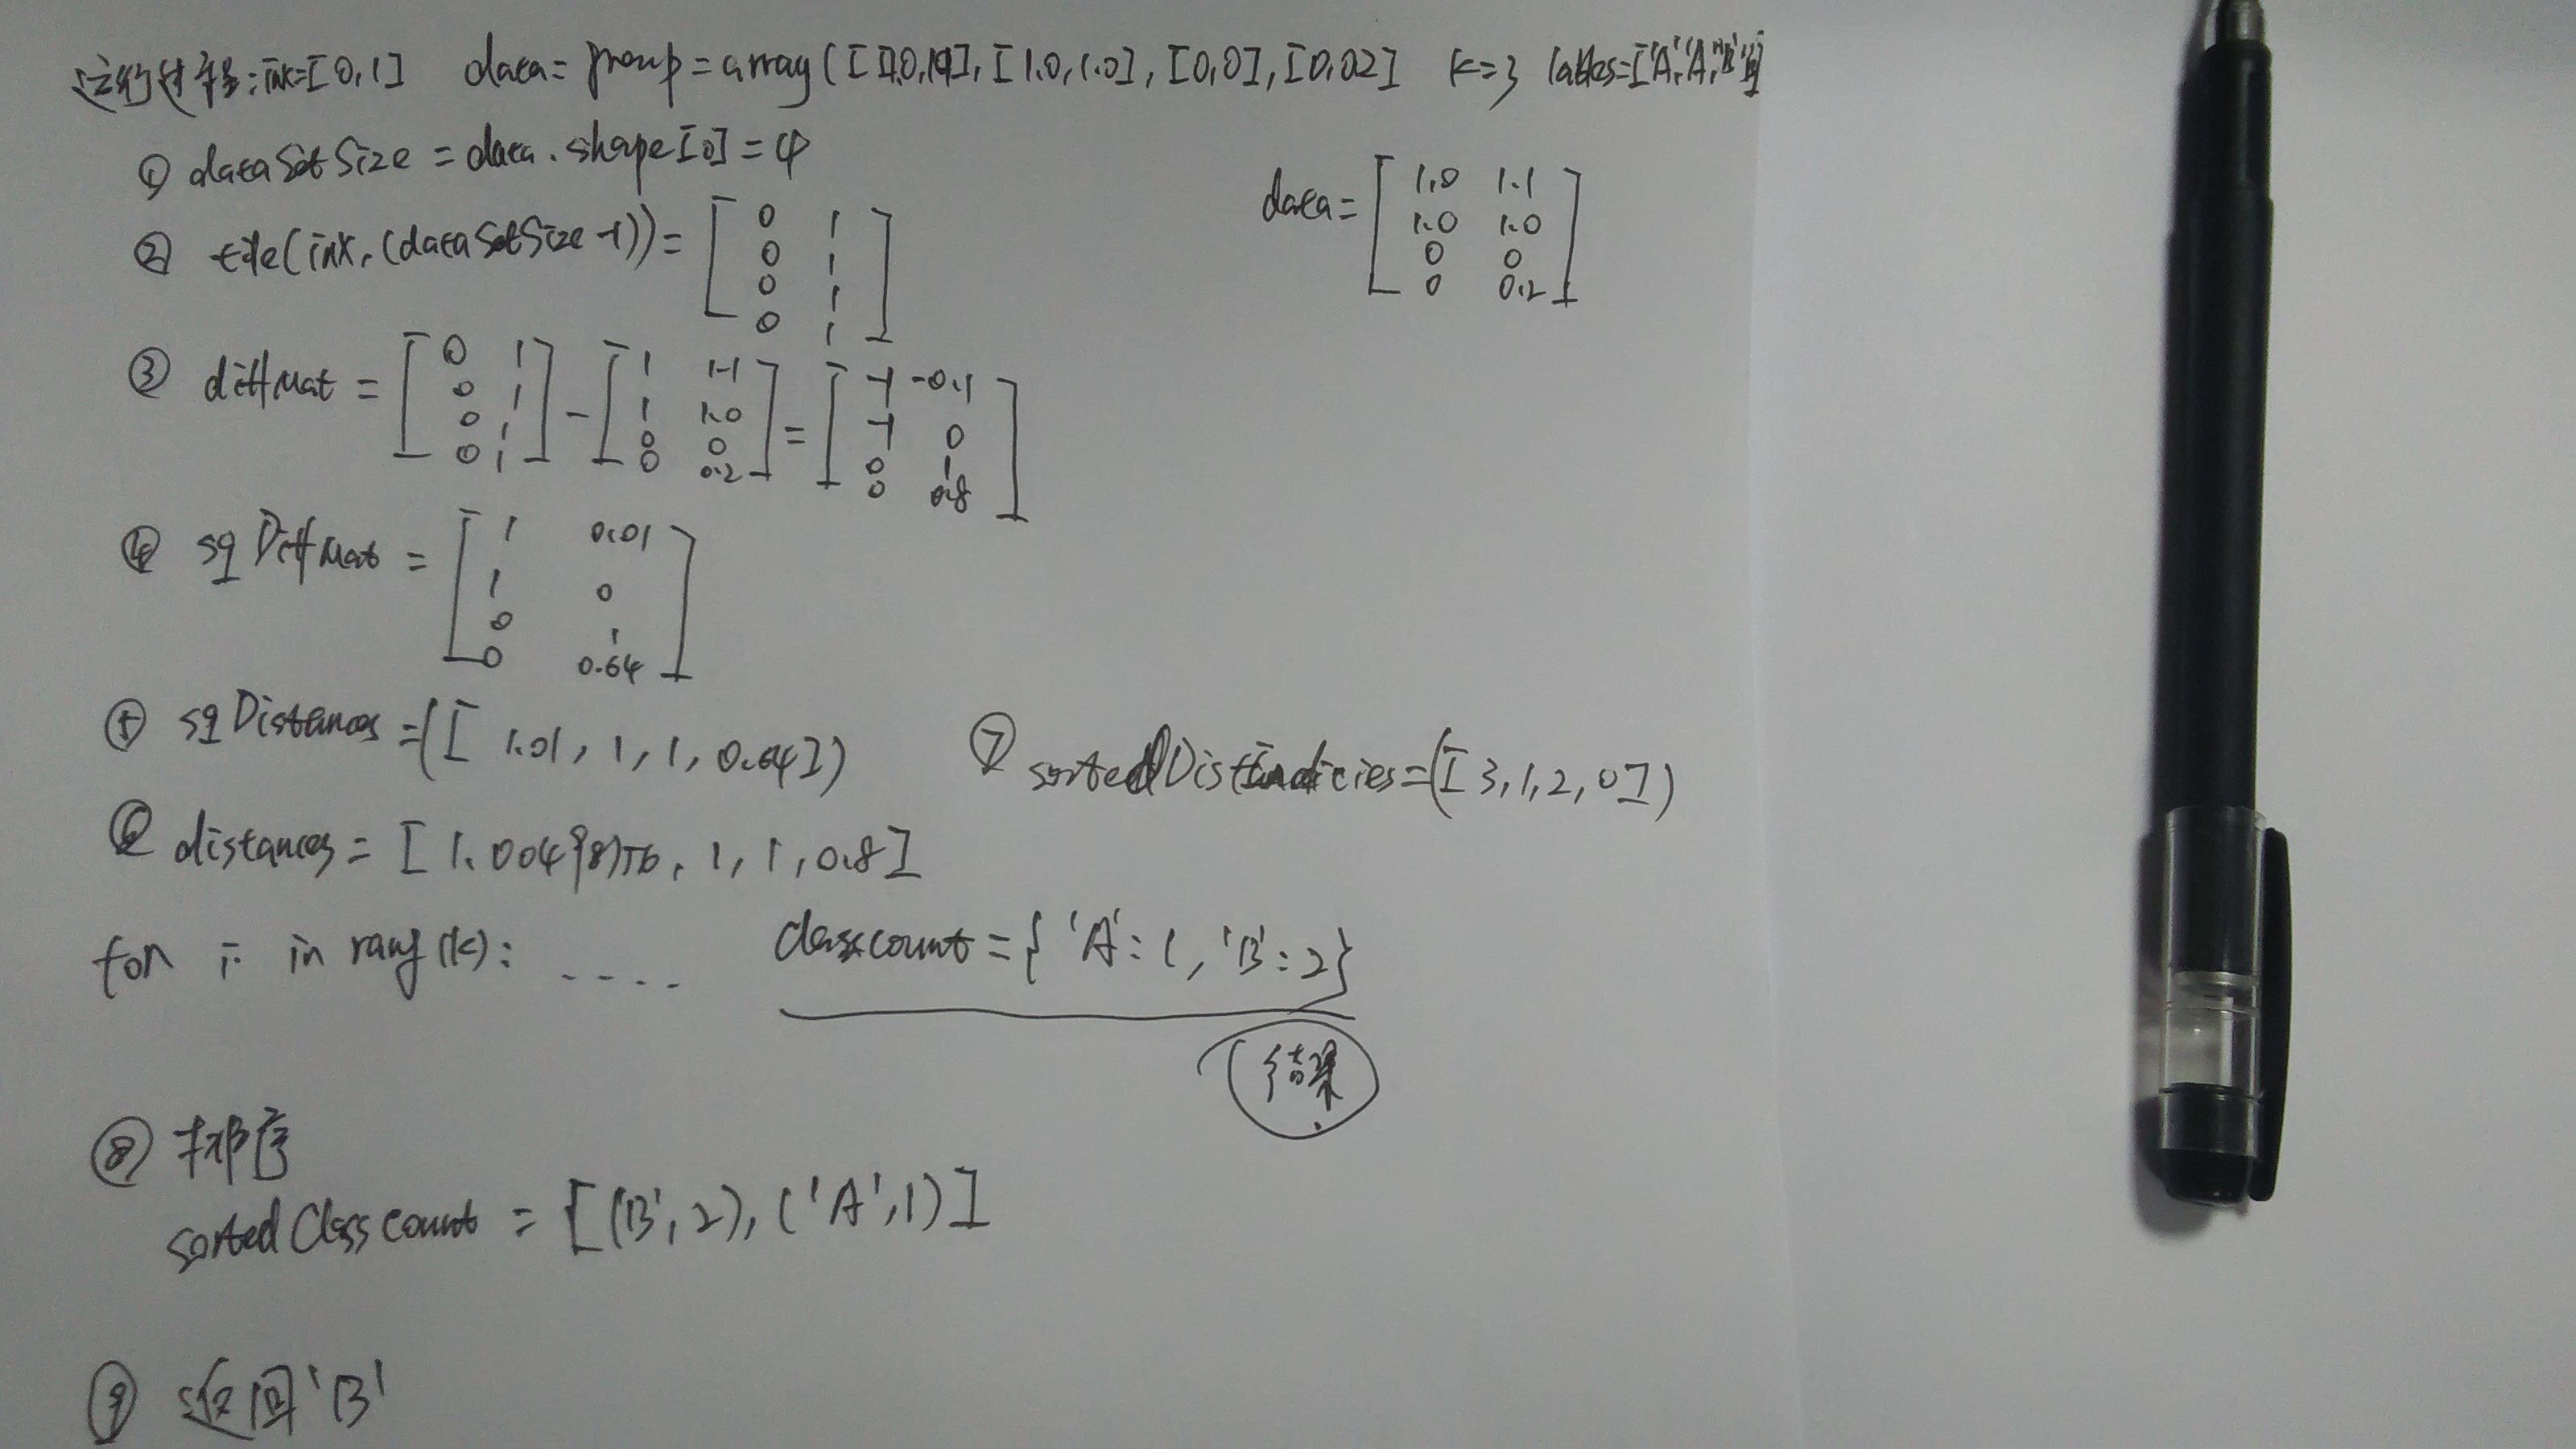 运行过程:inX=[0,1] data=group=array([[1.0,1.1],[1.0,1.0],[0,0],[0,0.2] k=3 labels=['A','A','B','B']
① dataSetSize = data.shape[0]=4
data= [ 1.0 1.1
1.0 1.0
0 0
0 0.2 ]
② tile(inX,(dataSetSize,1))= [ 0 1
0 1
0 1
0 1 ]
③ diffMat = [ 0 1
0 1
0 1
0 1 ] - [ 1 1.1
1 1.0
0 0
0 0.2 ] = [ -1 -0.1
-1 0
0 1
0 0.8 ]
④ sqDiffMat = [ 1 0.01
1 0
0 1
0 0.64 ]
⑤ sqDistances=([ 1.01, 1, 1, 0.64])
⑦ sortedDistIndicies=([3,1,2,0])
⑥ distances = [ 1.00498756, 1, 1, 0.8]
for i in rang(k): ....
classcount={'A':1,'B':2}
结果
⑧ 排序
sortedClasscount = [('B',2),('A',1)]
⑨ 返回'B'